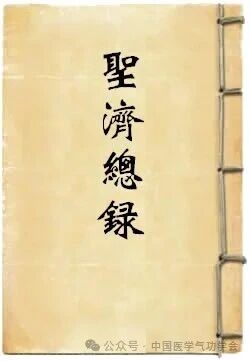 聖濟總録
公众号 · 中国医学气功学会